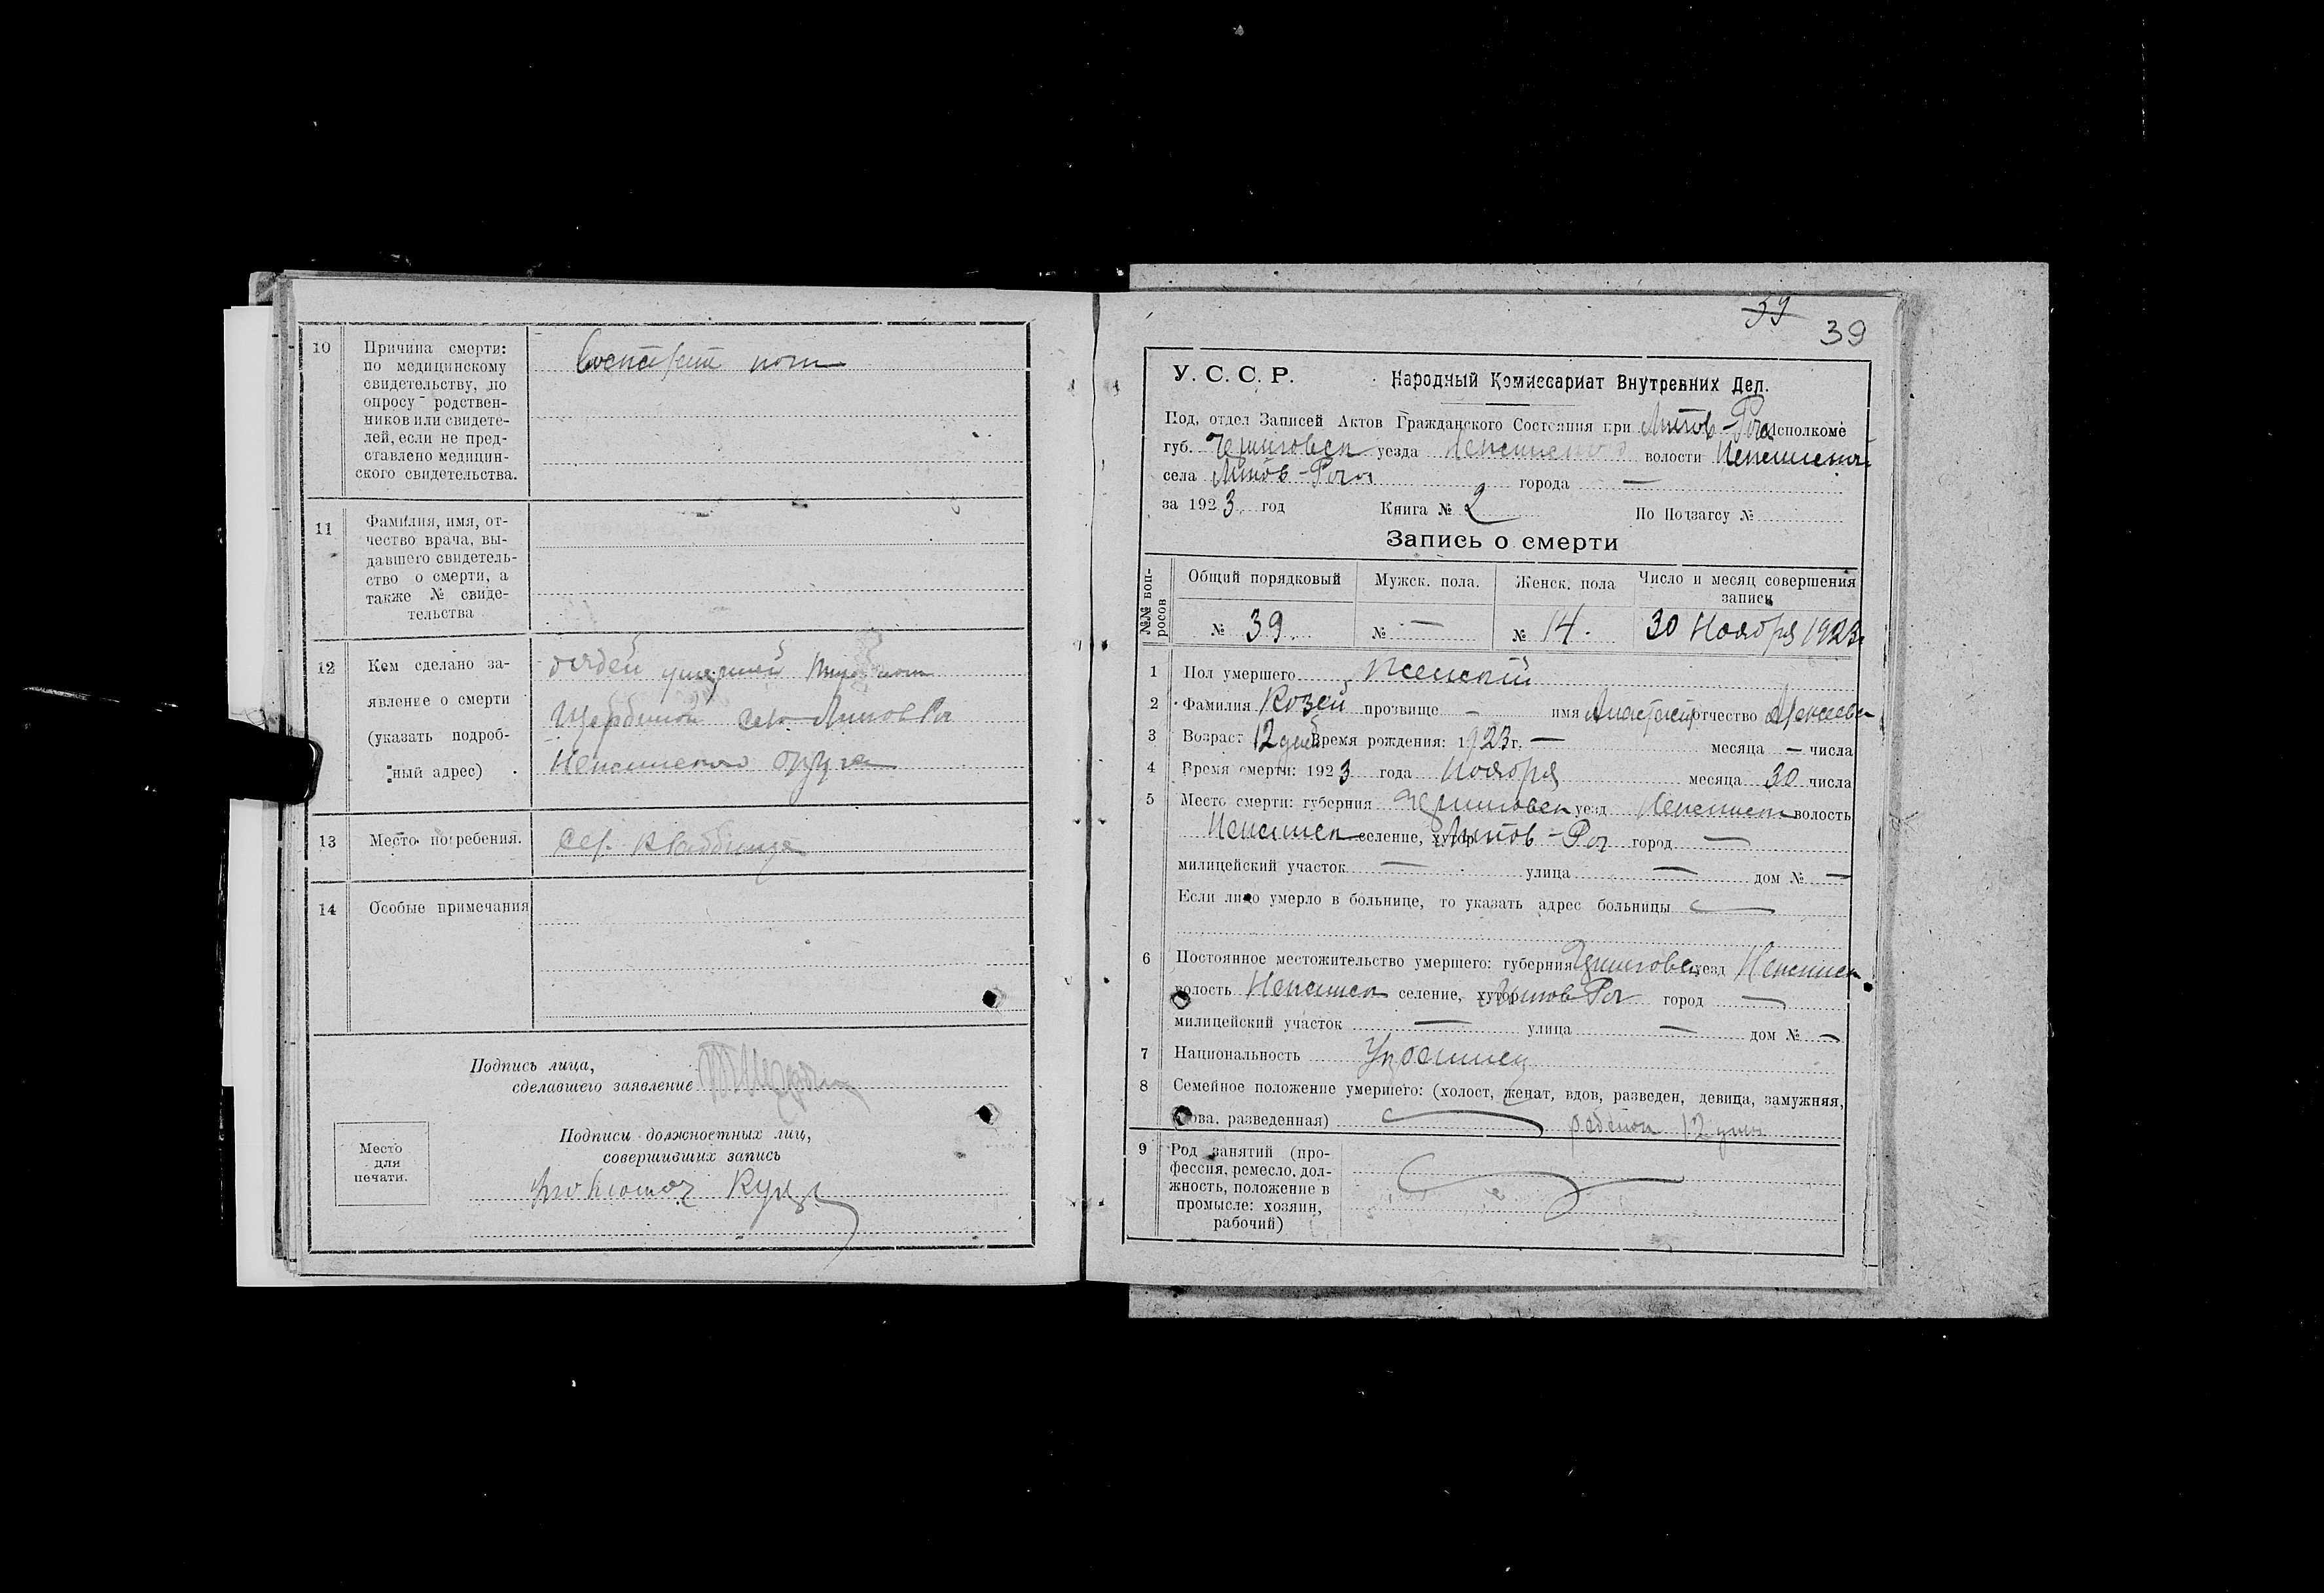 10
Причина смерти:
по медицинскому
свидетельству, по
опросу родствен-
ников или свидете-
лей, если не пред-
ставлено медицин-
ского свидетельства.
11
Фамилия, имя, от-
чество врача, вы-
давшего свидетель-
ство о смерти, а
также № свиде-
тельства
12
Кем сделано за-
явление о смерти
(указать подроб-
ный адрес)
дядей умершей
Щербиной Липов Рог
Неженского округа
13
Место погребения.
кладбище
14
Особые примечания
Подпись лица,
сделавшего заявление
Подписи должностных лиц,
совершивших запись
Место
для
печати.
39
39
У. С. С. Р. Народный Комиссариат Внутренних Дел.
Под, отдел Записей Актов Гражданского Состояния при Липов-Рог Исполкоме
губ. Черниговск уезда Неженского волости Неженской
села Липов-Рог города —
за 1923 год Книга № 2 По Подзагсу №
Запись о смерти
№№ воп-
росов
Общий порядковый Мужск. пола. Женск. пола Число и месяц совершения
записи
№ 39 № — № 14. 30 Ноября 1923г
1 Пол умершего Женский
2 Фамилия Козей прозвище — имя Анастасия отчество Алексеевна
3 Возраст 12 дней Время рождения: 1923г. — месяца — числа
4 Время смерти: 1923 года Ноября месяца 30 числа
5 Место смерти: губерния Черниговск уезд Неженск волость
Неженск селение, хутор Липов-Рог город —
милицейский участок — улица — дом № —
Если лицо умерло в больнице, то указать адрес больницы —
6 Постоянное местожительство умершего: губерния Черниговск уезд Неженск
волость Неженск селение, хутор Липов Рог город —
милицейский участок — улица — дом № —
7 Национальность
8 Семейное положение умершего: (холост, женат, вдов, разведен, девица, замужняя,
вдова, разведенная) — 12 дней
9 Род занятий (про-
фессия, ремесло, дол-
жность, положение в
промысле: хозяин,
рабочий)